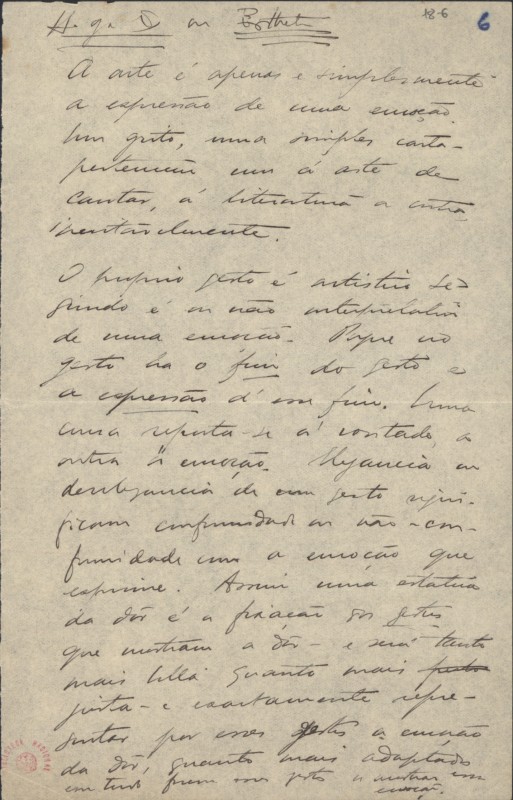 18-6
6
ou
A arte é apenas e simplesmente
a expressão de uma emoção.
Um grito, uma simples carta
pertencem um á arte de
cantar, á litteratura a outra
inevitavelmente.
O proprio gesto é artistico se-
gundo é ou não interpretativo
de uma emoção. Porque no
gesto ha o fim do gesto e
a expressão d'esse fim. Uma
cousa reporta-se á vontade, a
outra á emoção. Elegancia ou
deselegancia de um gesto signi-
ficam conformidade ou não-con-
formidade com a emoção que
exprime. Assim uma estatua
da dôr é a fixação dos gestos
que mostram a dôr — e será tanto
mais bella quanto mais
justa- e exactamente repre-
sentar por esses gestos a emoção
da dôr, quanto mais adaptados
com tudo forem esses gestos a mostrar essa
emoção.